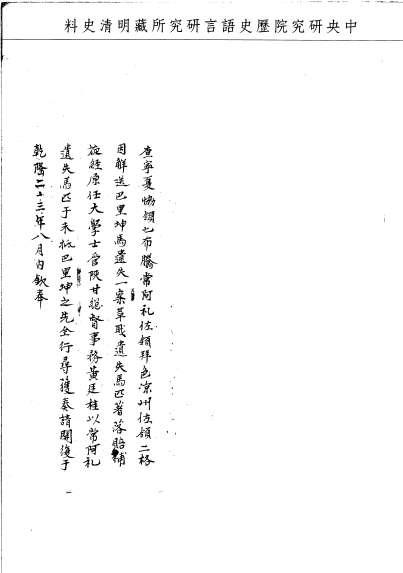 中央研究院歷史語言研究所藏明清史料
查寧夏協領七布騰常阿礼佐領拜色凉州佐領二格
因解送巴里坤馬遺失一案草職遺失馬匹著落賠補
茲經原任大學士管陝甘總督事務黃廷桂以常阿礼
遺失馬匹于未抵巴里坤之先全行尋獲奏請開復于
乾隆二十三年八月内欽奉
一